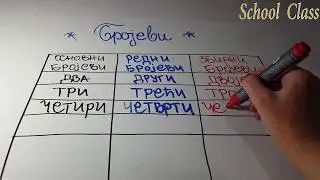 School Class
* Бројеви *
ОСНОВНИ БРОЈЕВИ
РЕДНИ БРОЈЕВИ
ЗБИРНИ БРОЈЕВИ
ДВА ДРУГИ
ТРИ ТРЕЋИ
ЧЕТИРИ ЧЕТВРТИ ЧЕ